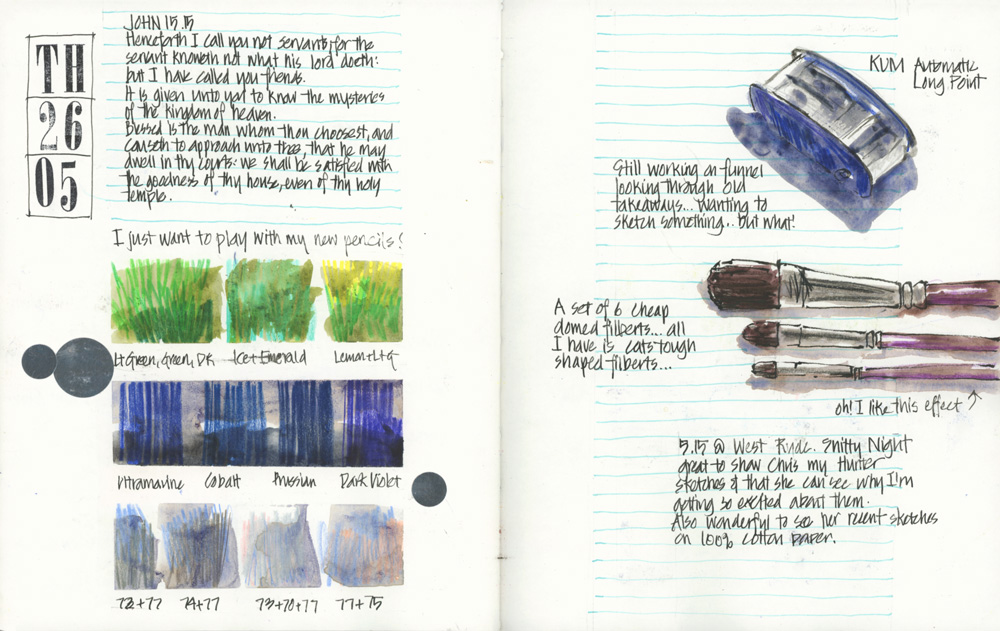 TH
26
05
JOHN 15.15
Henceforth I call you not servants; for the
servant knoweth not what his lord doeth:
but I have called you friends.
It is given unto yo to know the mysteries
of the kingdom of heaven.
Blessed is the man whom thou choosest, and
causeth to approach unto thee, that he may
dwell in thy courts: we shall be satisfied with
the goodness of thy house, even of thy holy
temple.
I just want to play with my new pencils!
Lt Green, Green, DK
Ice + Emerald
Lemon + Lt G
Ultramarine
Cobalt
Prussian
Dark Violet
72+77
74+77
73+70+77
77+75
KUM Automatic
Long Point
Still working on funnel
looking through old
takeaways... wanting to
sketch something... but what!
A set of 6 cheap
domed filberts... all
I have is cats tough
shaped filberts...
oh! I like this effect ↗
5.15 @ West Ryde. Snitty Night
great to show Chris my
sketches & that she can see why I'm
getting so excited about them.
Also wonderful to see her recent sketches
on 100% cotton paper.